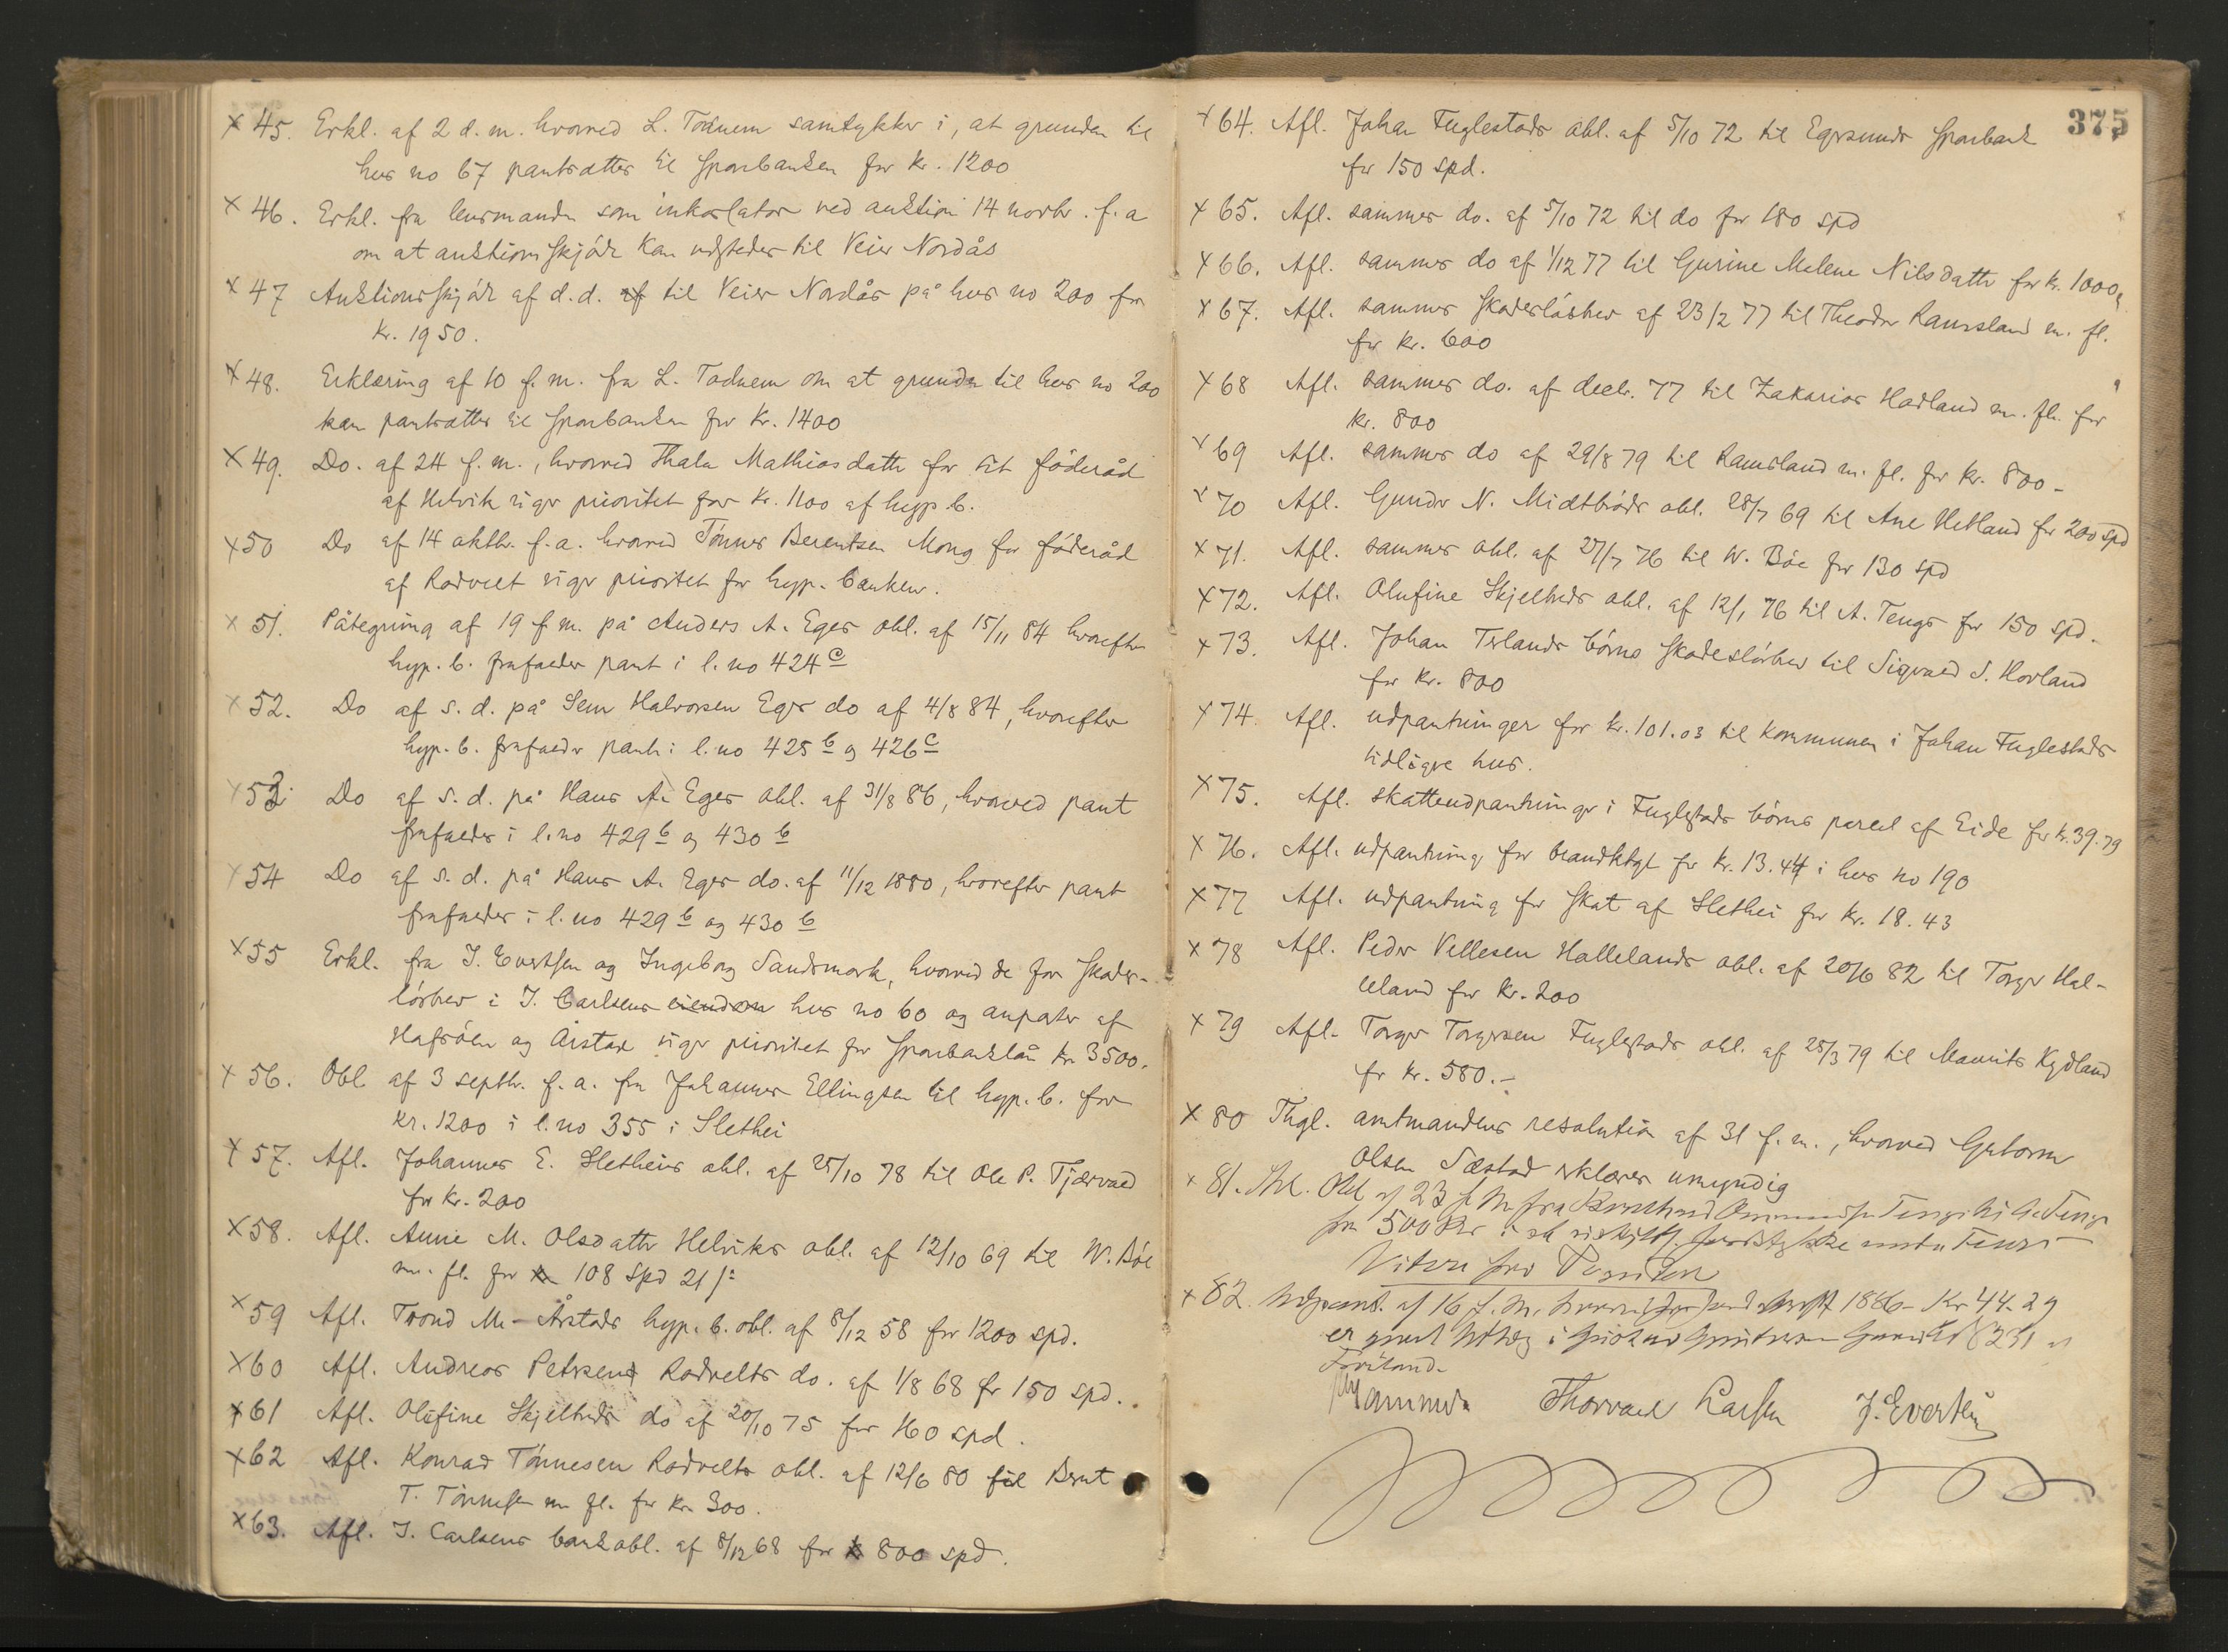 X 45. Erkl. af 2 d. m. hvorved L. Todnem samtykker i, at grunden til
hus no 67 pantsættes til Sparbanken for kr. 1200
X 46. Erkl. fra lensmanden som inkassator ved auktion 14 novbr. f. a
om at auktionsskjöde kan udstedes til Veier Nordås
X 47 Auktionsskjöde af d. d. til Veier Nordås på hus no 200 for
kr. 1950.
X 48. Erklæring af 10 f. m. fra L. Todnem om at grunden til hus no 200
kan pantsættes til Sparbanken for kr. 1400
X 49. Do. af 24 f. m., hvorved Thala Mathiasdatter for sit föderåd
af Helvik viger prioritet for kr. 1100 af hyp. b.
X 50 Do af 14 oktbr. f. a. hvorved Tönnes Berentsen Mong for föderåd
af Rodvelt viger prioritet for hyp. banken.
X 51. Påtegning af 19 f. m. på Anders A. Eges obl. af 15/11 84 hvorefter
hyp. b. frafalder pant i l. no 424 c
X 52. Do af s. d. på Sem Halvorsen Eges do af 4/8 84, hvorefter
hyp. b. frafalder pant i l. no 425 b og 426 c
X 53. Do af s. d. på Hans A. Eges obl. af 31/8 86, hvorved pant
frafaldes i l. no 429 b og 430 b
X 54 Do af s. d. på Hans A. Eges do. af 11/12 1880, hvorefter pant
frafaldes i l. no 429 b og 430 b
X 55 Erkl. fra J. Evertsen og Ingeborg Sandsmark, hvorved de for skades-
lösbrev i J. Carlsens eiendom hus no 60 og anparter af
Hafsöen og Årstad viger prioritet for Sparbanklån kr. 3500.
X 56. Obl. af 3 septbr. f. a. fra Johannes Ellingsen til hyp. b. for
kr. 1200 i l. no 355 i Slethei
X 57. Afl. Johannes E. Sletheis obl. af 25/10 78 til Ole P. Tjærvald
for kr. 200
X 58. Afl. Anne M. Olsdatter Helviks obl. af 12/10 69 til W. Böe
m. fl. for 108 spd 21 s:
X 59 Afl. Trond M. Årstads hyp. b. obl. af 8/12 58 for 1200 spd.
X 60 Afl. Andreas Petersens Rodvelts do. af 1/8 68 for 150 spd.
X 61 Afl. Olufine Skjelbreds do af 20/10 75 for 160 spd.
X 62 Afl. Konrad Tönnesen Rodvelts obl. af 12/6 80 til Bernt
T. Tönnesen m fl. for kr. 300.
X 63. Afl. J. Carlsens bankobl. af 8/12 68 for 800 spd.
375
X 64. Afl. Johan Fuglestads obl. af 5/10 72 til Egersunds Sparbank
for 150 spd.
X 65. Afl. sammes do. af 5/10 72 til do for 180 spd
X 66. Afl. sammes do af 1/12 77 til Gurine Malene Nilsdatter for kr. 1000
X 67. Afl. sammes skadeslösbrev af 23/2 77 til Theodor Ramsland m. fl.
for kr. 600
X 68 Afl. sammes do. af decbr. 77 til Zakarias Hadland m. fl. for
kr. 800
X 69 Afl. sammes do af 29/8 79 til Ramsland m. fl. for kr. 800 -
X 70 Afl. Gunder N. Midtbröds obl. 28/7 69 til Ane Hetland for 200 spd
X 71. Afl. sammes obl. af 27/7 76 til W. Böe for 130 spd
X 72. Afl. Olufine Skjelbreds obl. af 12/1 76 til A. Tengs for 150 spd.
X 73. Afl. Johan Tslands börns skadeslösbrev til Sigvald S. Hovland
for kr. 800
X 74. Afl. udpantninger for kr. 101.03 til kommunen i Johan Fuglestads
tidligere hus.
X 75. Afl. skatteudpantninger i Fuglestads börns parcel af Eide for kr. 39.79
X 76. Afl. udpantning for brandktgt for kr. 13.44 i hus no 190
X 77 Afl. udpantning for skat af Slethei for kr. 18.43
X 78 Afl. Peder Vellesen Hallelands obl. af 20/6 82 til Torger Hal-
leland for kr. 200
X 79 Afl. Torger Torgersen Fuglestads obl. af 25/3 79 til Maurits Kydland
for kr. 580.-
X 80 Thgl. amtmandens resolution af 31 f. m., hvorved Gutorm
Olsen Sæstad erklæres umyndig
X 81. Obl af 23 f M fra Tengs til A. Tengs
for 500 Kr i
X 82. Udpant. af 16 f. M. hvorved for 1886 - Kr 44.29
er gjort Udlæg i No 231

Thorvald Larsen J. Evertsen